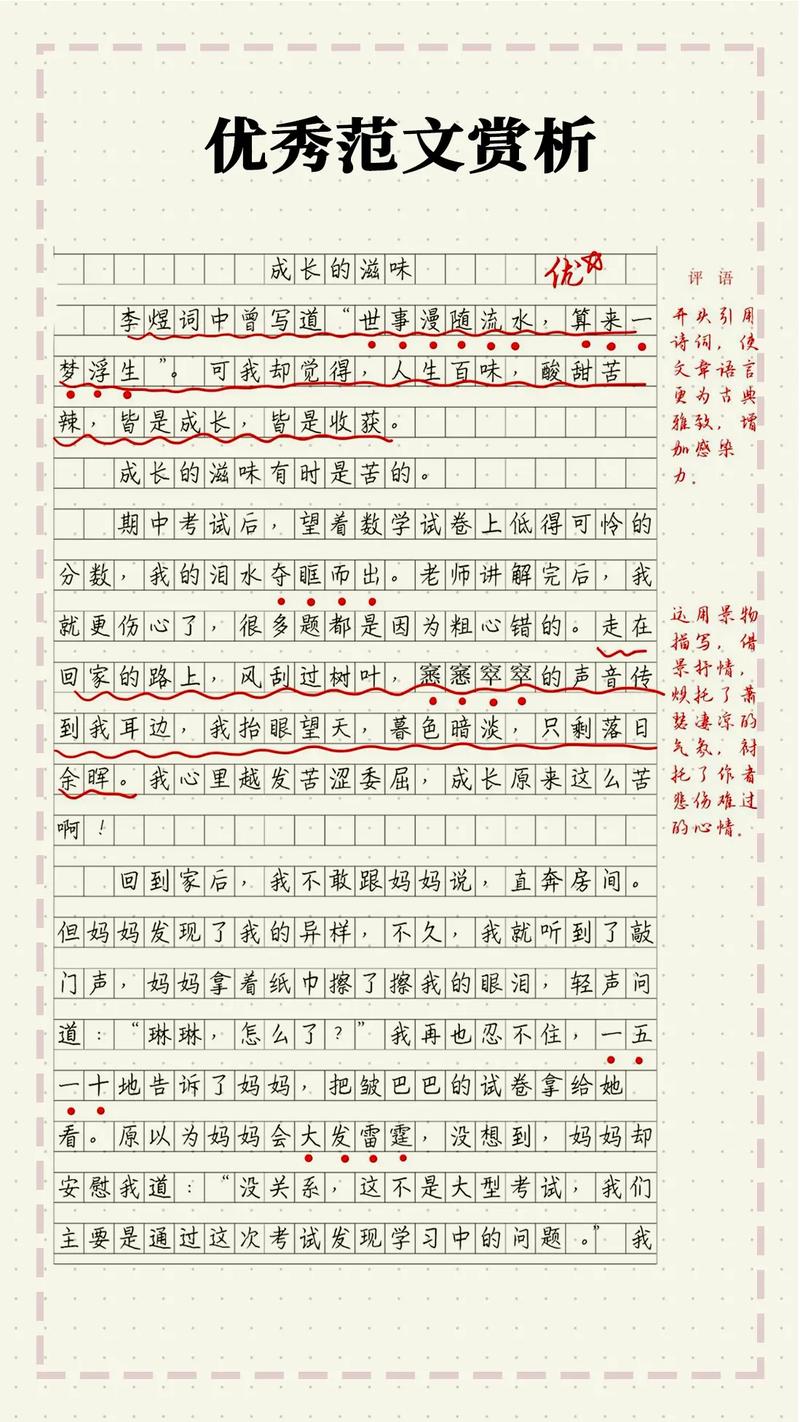 优秀范文赏析
成长的滋味
优
李煜词中曾写道“世事漫随流水，算来一
梦浮生”。可我却觉得，人生百味，酸甜苦
辣，皆是成长，皆是收获。
成长的滋味有时是苦的。
期中考试后，望着数学试卷上低得可怜的
分数，我的泪水夺眶而出。老师讲解完后，我
就更伤心了，很多题都是因为粗心错的。走在
回家的路上，风刮过树叶，窸窸窣窣的声音传
到我耳边，我抬眼望天，暮色暗淡，只剩落日
余晖。我心里越发苦涩委屈，成长原来这么苦
啊！
回到家后，我不敢跟妈妈说，直奔房间。
但妈妈发现了我的异样，不久，我就听到了敲
门声，妈妈拿着纸巾擦了擦我的眼泪，轻声问
道：“琳琳，怎么了？”我再也忍不住，一五
一十地告诉了妈妈，把皱巴巴的试卷拿给她
看。原以为妈妈会大发雷霆，没想到，妈妈却
安慰我道：“没关系，这不是大型考试，我们
主要是通过这次考试发现学习中的问题。”我
评 语
开头引用
诗词，使
文章语言
更为古典
雅致，增
加感染
力。
运用景物
描写，借
景抒情，
烘托了萧
瑟凄凉的
气氛，衬
托了作者
悲伤难过
的心情。